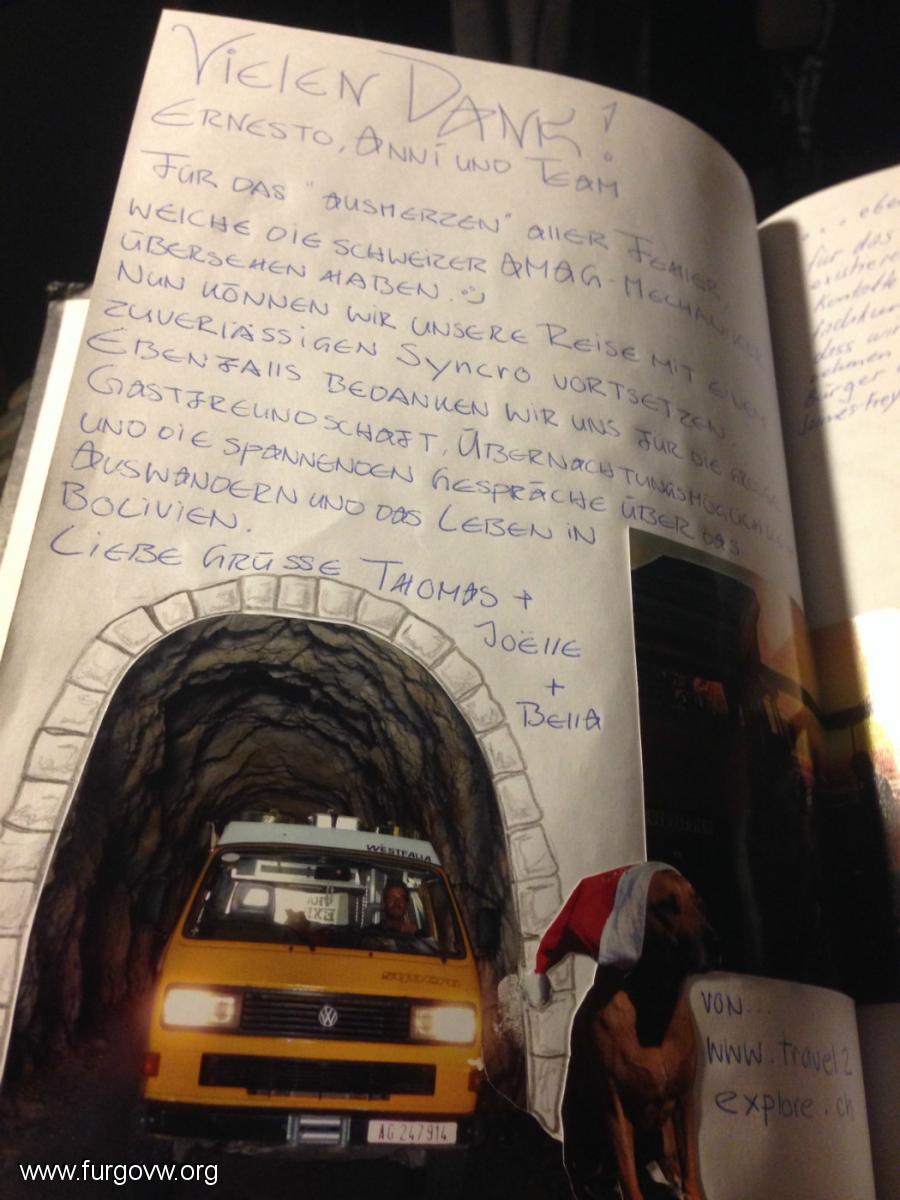 VIELEN DANK!
ERNESTO, ANNI UND TEAM
FÜR DAS "AUSMERZEN" ALLER FEHLER,
WELCHE DIE SCHWEIZER AMAG-MECHANIKER
ÜBERSEHEN HABEN.
NUN KÖNNEN WIR UNSERE REISE MIT EINEM
ZUVERLÄSSIGEN SYNCRO VORTSETZEN.
EBENFALLS BEDANKEN WIR UNS FÜR DIE GROSSE
GASTFREUNDSCHAFT, ÜBERNACHTUNGSMÖGLICHKEIT
UND DIE SPANNENDEN GESPRÄCHE ÜBER DAS
AUSWANDERN UND DAS LEBEN IN
BOLIVIEN.
LIEBE GRÜSSE THOMAS +
JOËLLE
+
BELLA
WESTFALIA
syncro
AG 247914
VON...
www.travel2
explore.ch
... ebe
für das
Kontakte
dass wir
nehmen
Bürger
James-Frey
www.furgovw.org